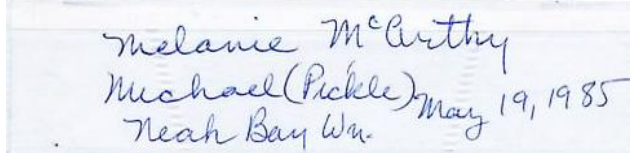 Melanie McCarthy
Michael (Pickle) May 19, 1985
Neah Bay Wn.